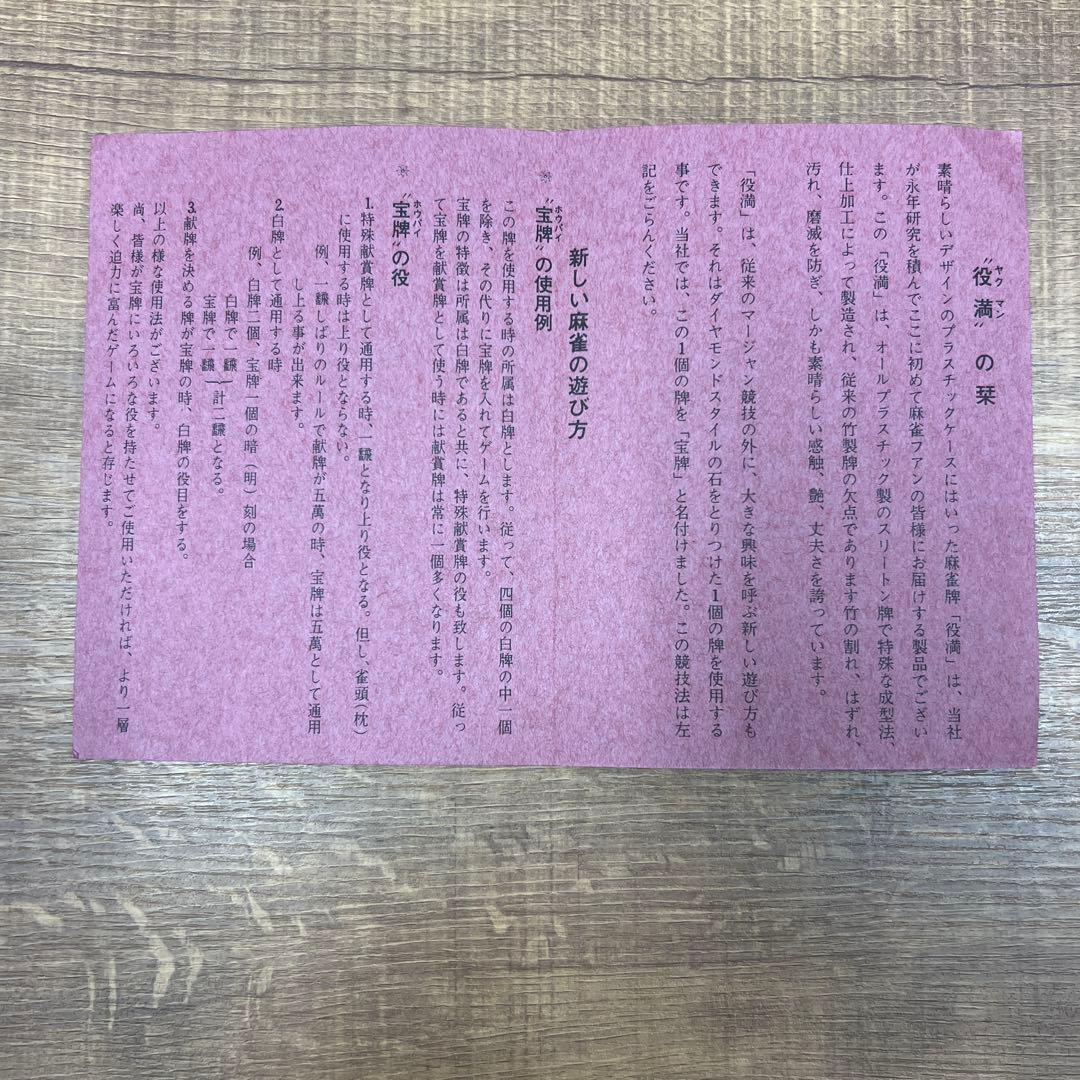 “役満”の栞
ヤクマン
素晴らしいデザインのプラスチックケースにはいった麻雀牌「役満」は、当社
が永年研究を積んでここに初めて麻雀ファンの皆様にお届けする製品でござい
ます。この「役満」は、オールプラスチック製のスリートン牌で特殊な成型法、
仕上加工によって製造され、従来の竹製牌の欠点であります竹の割れ、はずれ、
汚れ、磨滅を防ぎ、しかも素晴らしい感触、艶、丈夫さを誇っています。
「役満」は、従来のマージャン競技の外に、大きな興味を呼ぶ新しい遊び方も
できます。それはダイヤモンドスタイルの石をとりつけた1個の牌を使用する
事です。当社では、この1個の牌を「宝牌」と名付けました。この競技法は左
記をごらんください。
新しい麻雀の遊び方
※“宝牌”の使用例
ホウパイ
この牌を使用する時の所属は白牌とします。従って、四個の白牌の中一個
を除き、その代りに宝牌を入れてゲームを行います。
宝牌の特徴は所属は白牌であると共に、特殊献賞牌の役も致します。従っ
て宝牌を献賞牌として使う時には献賞牌は常に一個多くなります。
※“宝牌”の役
ホウパイ
1.特殊献賞牌として通用する時、一飜となり上り役となる。但し、雀頭(枕)
に使用する時は上り役とならない。
例、一飜しばりのルールで献牌が五萬の時、宝牌は五萬として通用
し上る事が出来ます。
2.白牌として通用する時
例、白牌二個、宝牌一個の暗(明)刻の場合
白牌で一飜
宝牌で一飜}計二飜となる。
3.献牌を決める牌が宝牌の時、白牌の役目をする。
以上の様な使用法がございます。
尚、皆様が宝牌にいろいろな役を持たせてご使用いただければ、より一層
楽しく迫力に富んだゲームになると存じます。